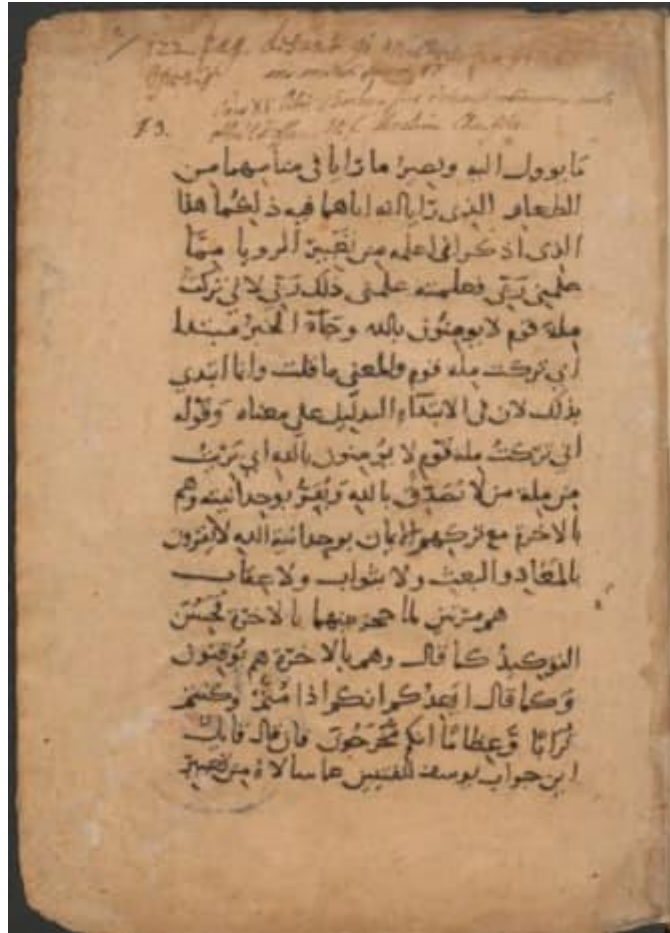 322 pag.
F3.
ما يوول اليه ويصير ما رايا في منامهما من
الطعام الذى رايا انه اتاهما فيه ذلكما هذا
الذى اذكر انى اعلمه من تعبير الرويا مما
علمنى ربى فعلمته علمنى ذلك ربى لانى تركت
ملة قوم لا يومنون بالله وجآء الخبر مبتدا
اى تركت مله قوم والمعنى ما قلت وانما ابتدى
بذلك لان فى الابتدآء الدليل على معناه وقوله
انى تركت مله قوم لا يومنون بالله اى برئت
من ملة من لا يصدق بالله ويقر بوحدانيته وهم
بالاخرة مع تركهم الايمان بوحدانية الله لا يقرون
بالمعاد والبعث ولا بثواب ولا عقاب
هم مرتين لما بينهما بالاخرة
التوكيد كما قال وهم بالاخرة هم يوقنون
وكما قال ايعدكم انكم اذا متم وكنتم
ترابا وعظاما انكم مخرجون فان قال قايل
اين جواب يوسف الفتيين عما سالاه من تعبير